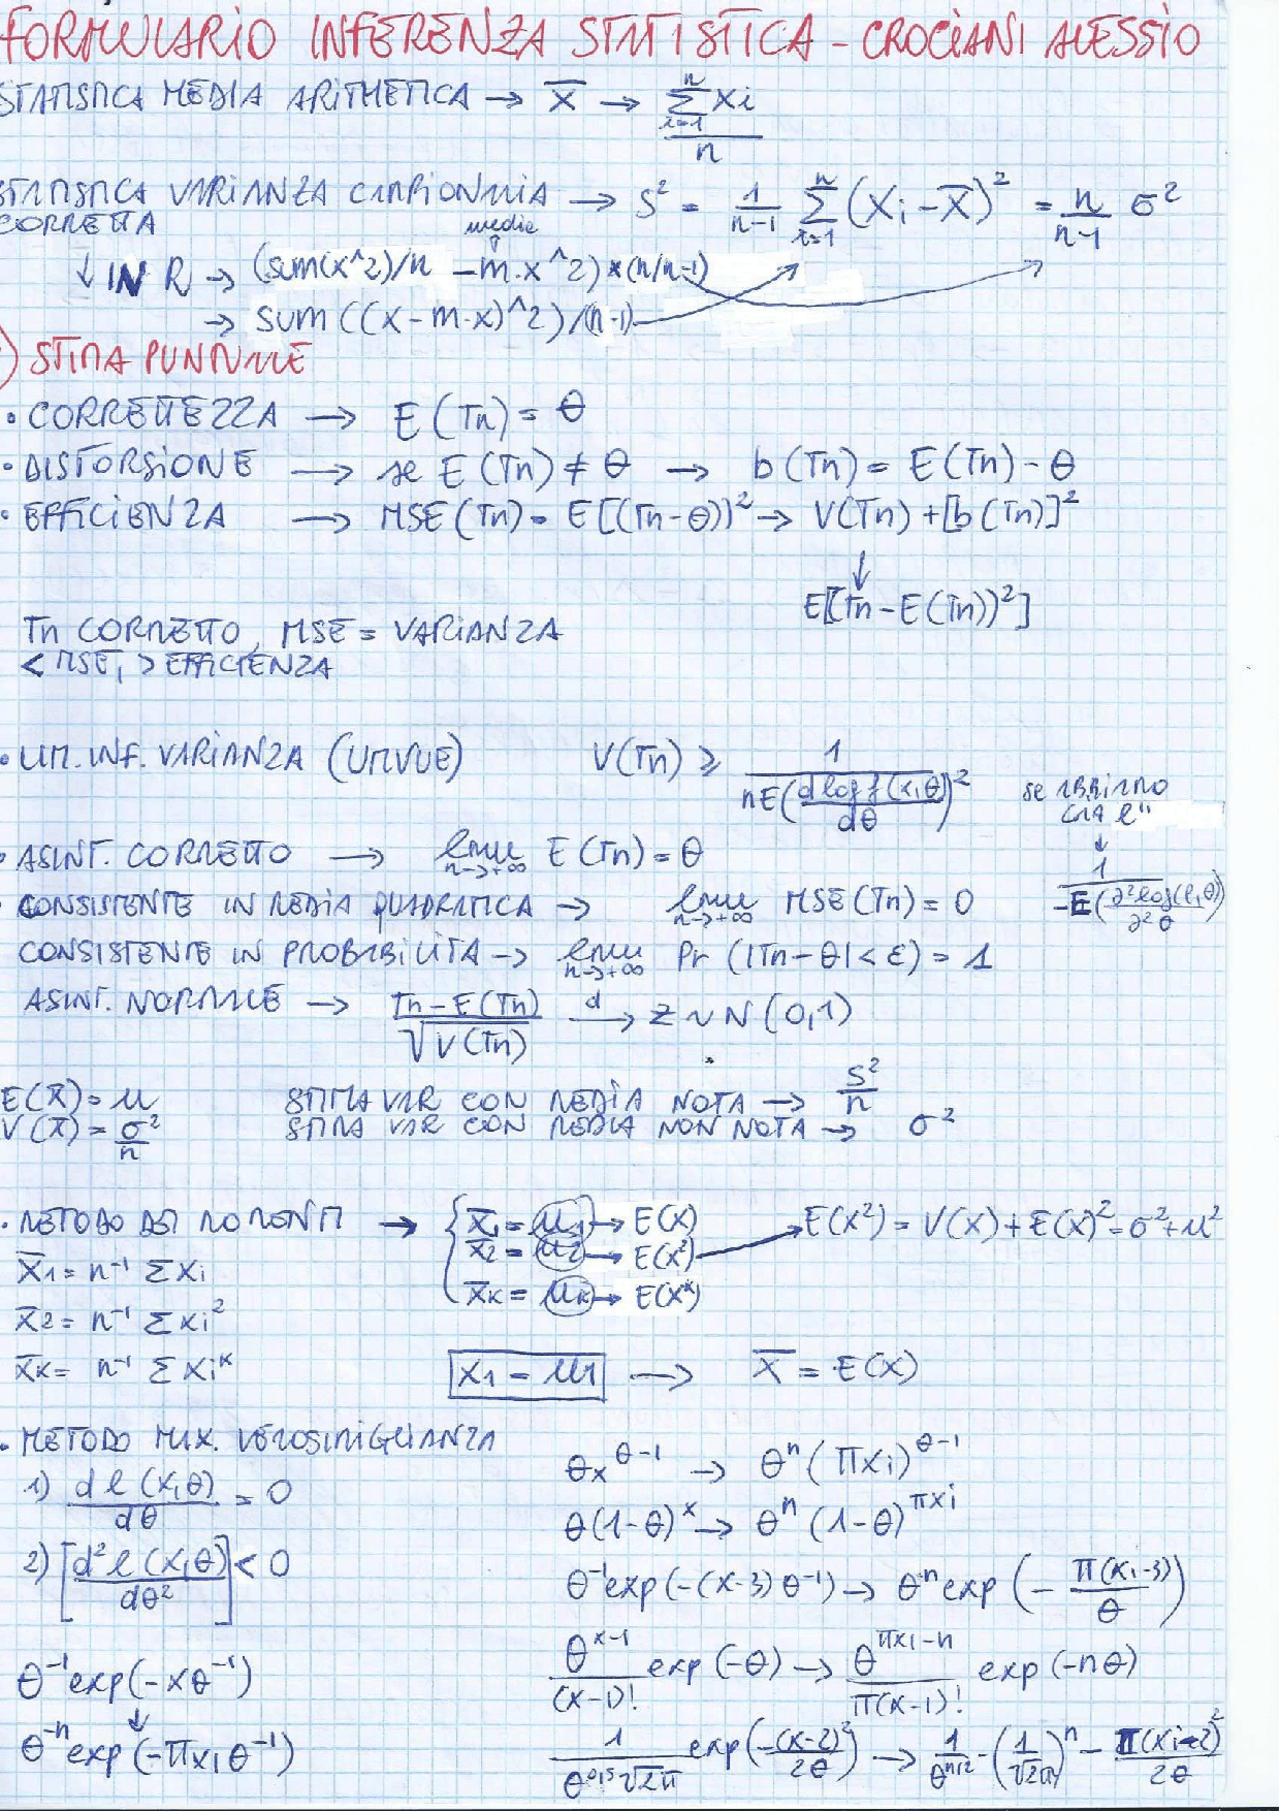 FORMULARIO INFERENZA STATISTICA - CROCIANI ALESSIO
STATISTICA MEDIA ARITMETICA → X̄ → Σ_{i=1}^{n} xi / n
STATISTICA VARIANZA CAMPIONARIA CORRETTA → S² = 1/(n-1) Σ_{i=1}^{n} (Xi - X̄)² = n/(n-1) σ²
media
↓ IN R → (sum(x^2)/n - m.x^2)*(n/n-1)
→ sum((x-m.x)^2)/(n-1)
) STIMA PUNTUALE
• CORRETTEZZA → E(Tn) = θ
• DISTORSIONE → se E(Tn) ≠ θ → b(Tn) = E(Tn) - θ
• EFFICIENZA → MSE(Tn) = E[(Tn-θ)]² → V(Tn) + [b(Tn)]²
↓
E[(Tn - E(Tn))²]
Tn CORRETTO, MSE = VARIANZA
< MSE, > EFFICIENZA
• LIM. INF. VARIANZA (UMVUE) V(Tn) ≥ 1 / nE(d log f(x,θ) / dθ)²
se abbiamo
già l''
↓
1 / -E(∂² log(l,θ) / ∂²θ)
• ASINT. CORRETTO → lim_{n→+∞} E(Tn) = θ
• CONSISTENTE IN MEDIA QUADRATICA → lim_{n→+∞} MSE(Tn) = 0
CONSISTENTE IN PROBABILITÀ → lim_{n→+∞} Pr(|Tn - θ| < ε) = 1
ASINT. NORMALE → (Tn - E(Tn)) / √V(Tn) →d Z ~ N(0,1)
E(X̄) = μ STIMA VAR CON MEDIA NOTA → S²/n
V(X̄) = σ²/n STIMA VAR CON MEDIA NON NOTA → σ²
• METODO DEI MOMENTI → { X̄1 = μ1 → E(X)
X̄2 = μ2 → E(X²) → E(X²) = V(X) + E(X)² = σ² + μ²
X̄k = μk → E(X^k)
X̄1 = n⁻¹ Σxi
X̄2 = n⁻¹ Σxi²
X̄k = n⁻¹ Σxi^k
X1 = μ1 → X̄ = E(X)
• METODO MAX. VEROSIMIGLIANZA
1) dl(x,θ)/dθ = 0
2) [d²l(x,θ)/dθ²] < 0
θ⁻¹exp(-xθ⁻¹)
↓
θ⁻ⁿexp(-πxiθ⁻¹)
θx^{θ-1} → θⁿ(πxi)^{θ-1}
θ(1-θ)^x → θⁿ(1-θ)^{πxi}
θ⁻¹exp(-(x-3)θ⁻¹) → θ⁻ⁿexp(-π(xi-3)/θ)
θ^{x-1}/(x-1)! exp(-θ) → θ^{πxi-n}/π(x-1)! exp(-nθ)
1/(θ^{0,5}√2π) exp(-(x-2)²/2θ) → 1/θ^{n/2} - (1/√2π)ⁿ - π(xi-2)²/2θ